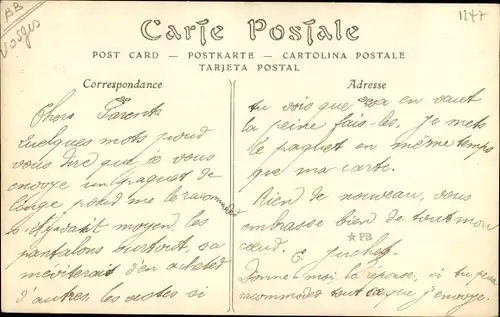 BB
Vosges
1247
Carte Postale
POST CARD — POSTKARTE — CARTOLINA POSTALE
TARJETA POSTAL
Correspondance
Chers Parents
Quelques mots pour
vous dire que je vous
envoye un paquet de
linge pour me le racommoder
S'il y avait moyen, les
pantalons surtout, sa
meriterait d'en acheter
d'autres, les vestes si
Adresse
tu vois que sa en vaut
la peine fais-les. Je mets
le paquet en même temps
que ma carte.
Rien de nouveau, vous
embrasse bien de tout mon
cœur.
★ PB
E.
Donne moi la réponse, si tu peux
racommoder tout ce que j'envoye.